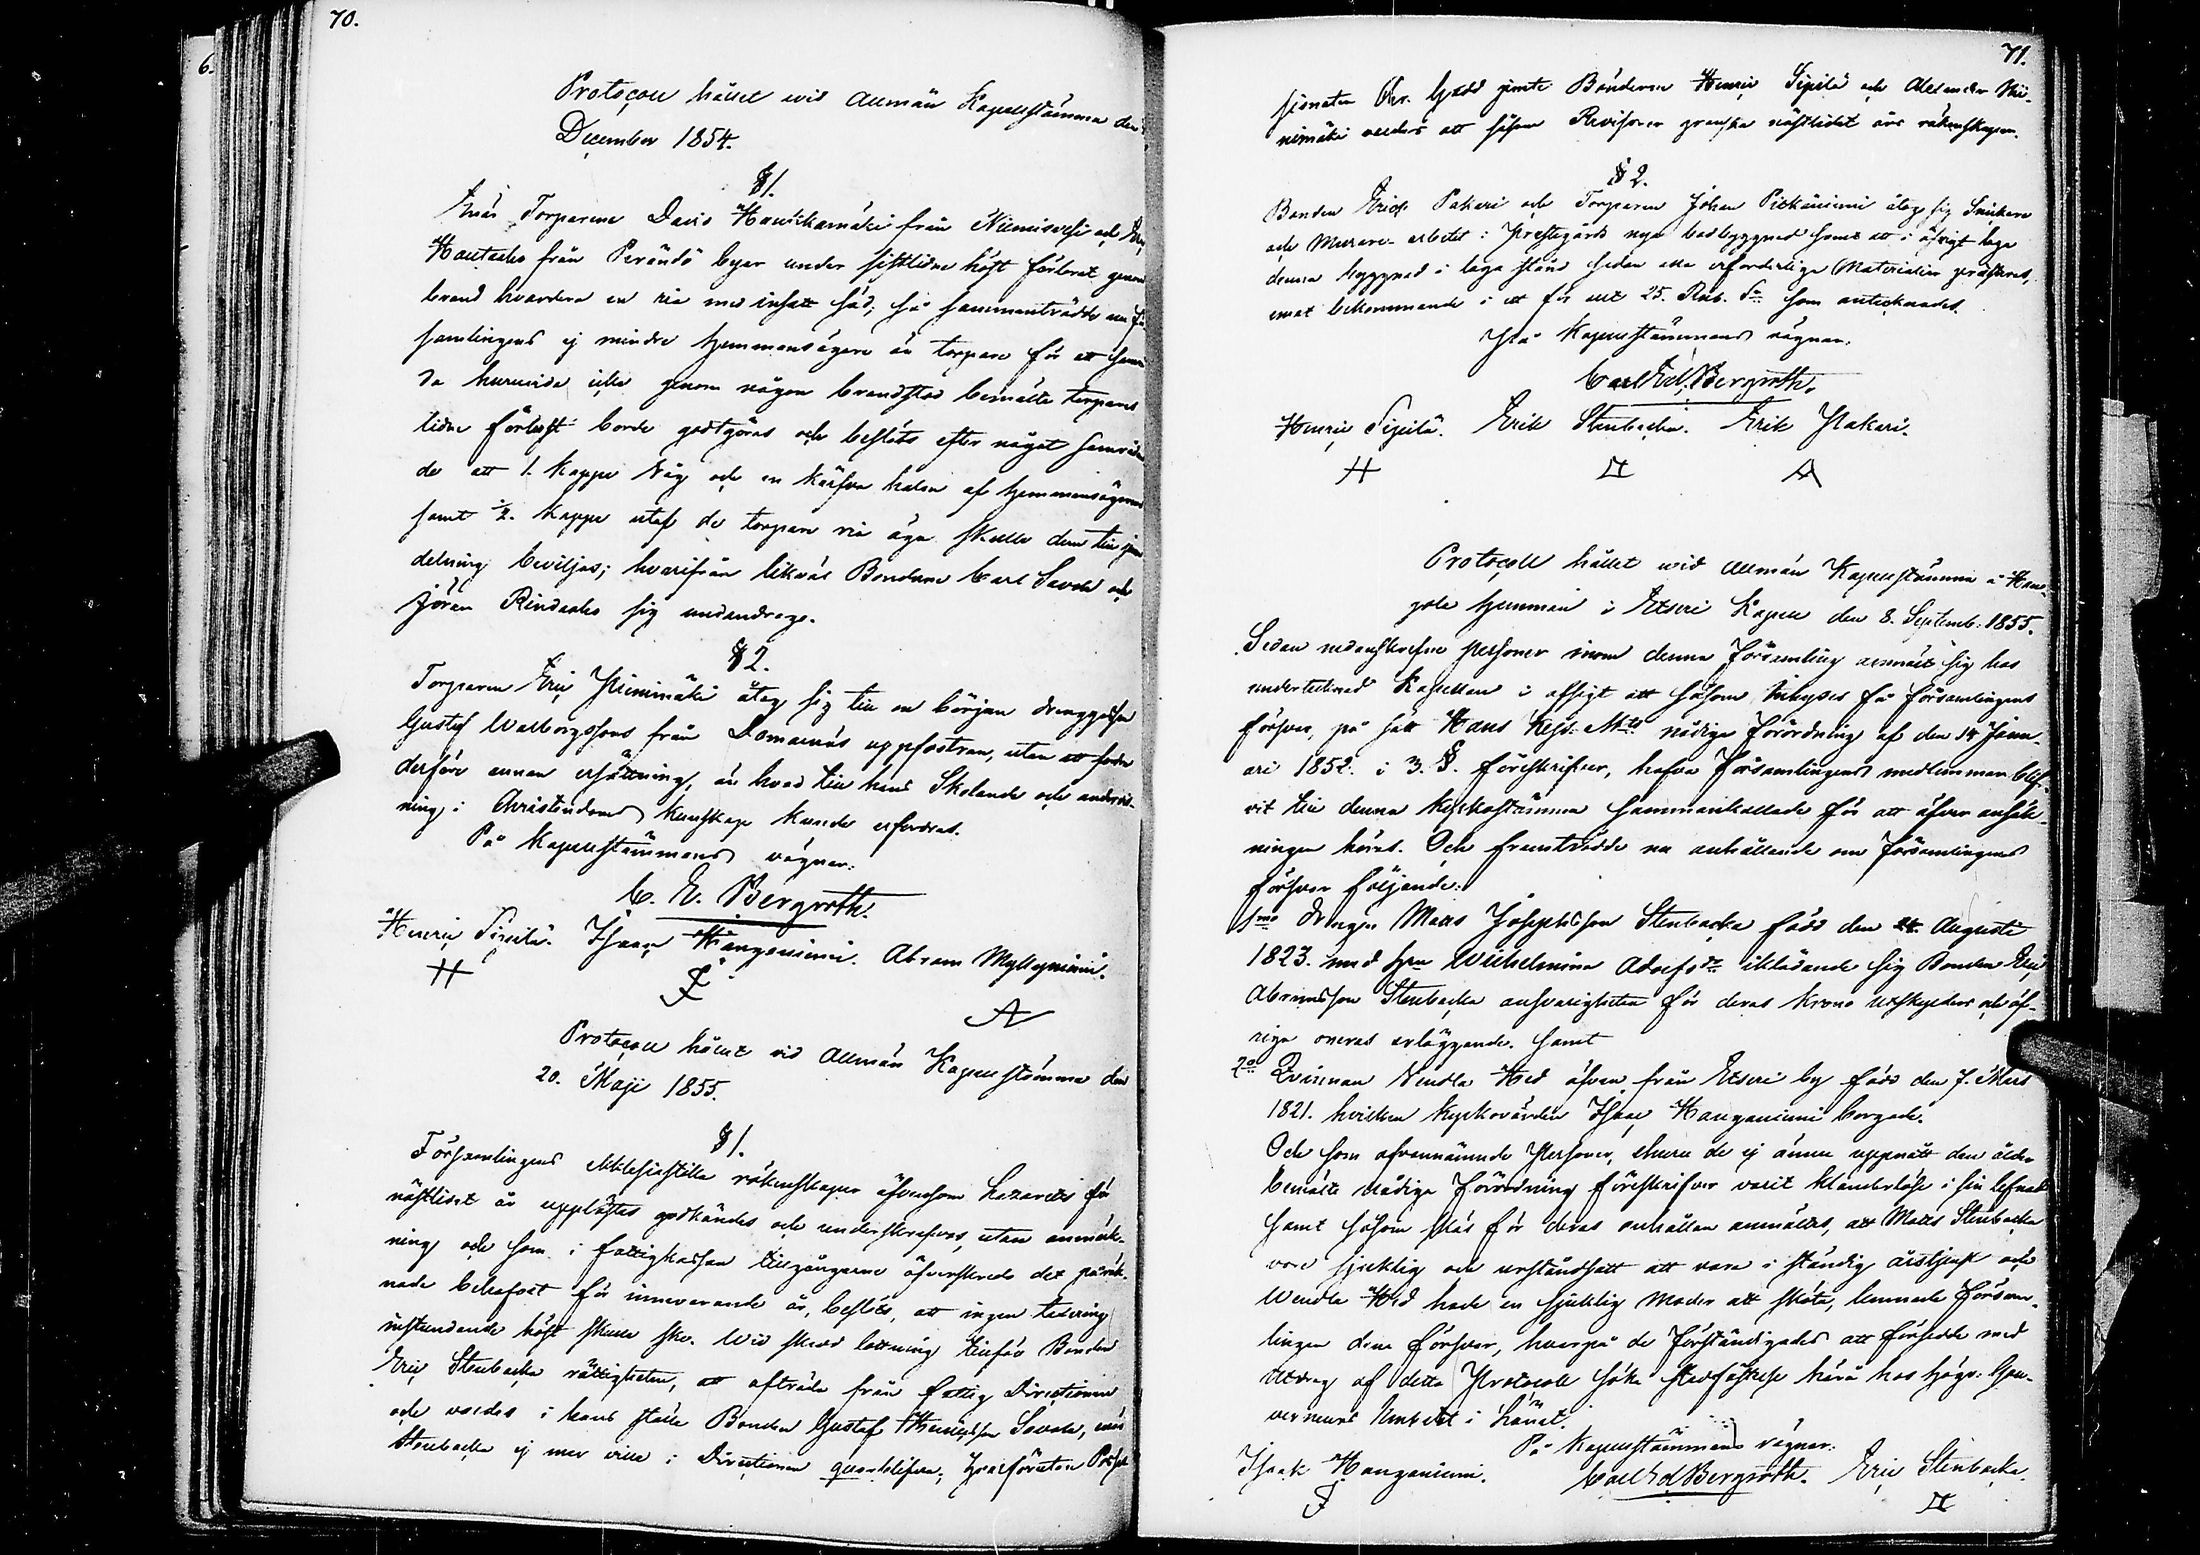 70.
6.
Protocoll hållet wid Allmän Kapellstämma den
December 1854.
§1.
Enär Torparene David Hautikamäki från Niemisvesi och Eric
Hautaaho från Peränö byar under sistlidne höst förlorat genom
brand hvardera en ria med insatt säd, så sammanträdde nu för-
samlingens ej mindre hemmansägare än torpare för att samrå-
da huruvida icke genom någon brandstod bemälte torpares
lidne förlust borde godtgöras och beslöts efter något samråd
de att 1. kappe Råg och en kärfva halm af hemmansägarne
samt ½. kappe utaf de torpare ria äga skulle dem till för-
delning beviljas; hvarifrån likväl Bonden Carl Savola och
Jöran Rindaaho sig undandrogo.
§2.
Torparen Eric Hiemimäki åtog sig till en början drenggossen
Gustaf Walborgssons från Domarnäs uppfostran, utan att fordra
derföre annan ersättning, än hvad till hans Skolande och undervis-
ning i Christendoms kunskap kunde erfordras.
På Kapellstämmans vägnar:
C. E. Bergroth.
Henric Sipilä. Isaac Hanganiemi. Abram Myllyniemi.
H I A
Protocoll hållet vid Allmän Kapellstämma den
20. Maji 1855.
§1.
Församlingens ecklesiastika räkenskaper äfvensom Lazaretts för
nästlidet år upplästes godkändes och underskrefvos, utan anmärk-
ning och som i fattigkassan tillgångarne öfverskredo det påräk-
nade behofvet för innevarande år, beslöts, att ingen taxering
instundande höst skulle ske. Wid skedd lottning tillföll Bonden
Eric Stenbacka rättigheten, att afträda från fattig Directionen
och valdes i hans ställe Bonden Gustaf Henricsson Savola, enär
Stenbacka ej mer ville i Directionen qvarblifva;
71.
jemte Bönderne Henric Sipilä och Alexander Nii-
nimäki valdes att såsom Revisorer granska nästlidet års räkenskaper.
§2.
Bonden Erick Pakari och Torparen Johan Pitkäniemi åtog sig Snickare
och Murare- arbetet i Prestegårds nya badbyggnad samt att i öfrigt laga
denna byggnad i laga stånd sedan alla erforderliga Materialier presterats,
emot bekommande i ett för allt 25. Rub. Sr. som antecknades.
På Kapellstämmans vägnar:
Carl Ed. Bergroth.
Henric Sipilä. Erik Stenbacka. Erik Pakari.
H
Protocoll hållet wid Allmän Kapellstämma å Han-
gola hemman i Etseri Kapell den 8. Septemb: 1855.
Sedan nedanskrefne personer inom denna församling anmält sig hos
undertecknad Kapellan i afsigt att såsom Inhyses få församlingens
försvar, på sätt Hans Kejs: Mts nådiga Förordning af den 14 Janu-
ari 1852. i 3. §. föreskrifver, hafva församlingens medlemmar blif-
vit till denna kyrkostämma sammankallade för att öfver ansök-
ningen höras. Och framträdde nu anhållande om församlingens
försvar följande:
1mo Drengen Matts Josephsson Stenbacka född den 24. Augusti
1823. med hu Wilhelmina Adolfsdr iklädande sig Bonden Eric
Abramsson Stenbacka ansvarigheten för deras krono utskylders och öf-
riga oneras erläggande. Samt
2do Qvinnan Wendla Hed äfven från Etseri by född den 7. Mars
1821. hvilken kyrkovärden Isaac Hanganiemi borgade.
Och som ofvannämnde Personer, ehuru de ej ännu uppnått den ålder
bemälte Nådiga Förordning föreskrifver varit klanderlöse i sin lefnad
samt såsom skäl för deras anhållan anmältes, att Matts Stenbacka
vore sjuklig och urståndsatt att vara i ständig årstjenst och
Wendla Hed hade en sjuklig Moder att sköta, lemnade Försam-
lingen dem försvar, hvarpå de förständigades att försedde med
Utdrag af detta Protocoll söka stadfästelse härå hos höga Gou-
verneurs Embetet i Länet.
På Kapellstämmans vägnar:
Isaak Hanganiemi. Carl Ed Bergroth. Eric Stenbacka.
I